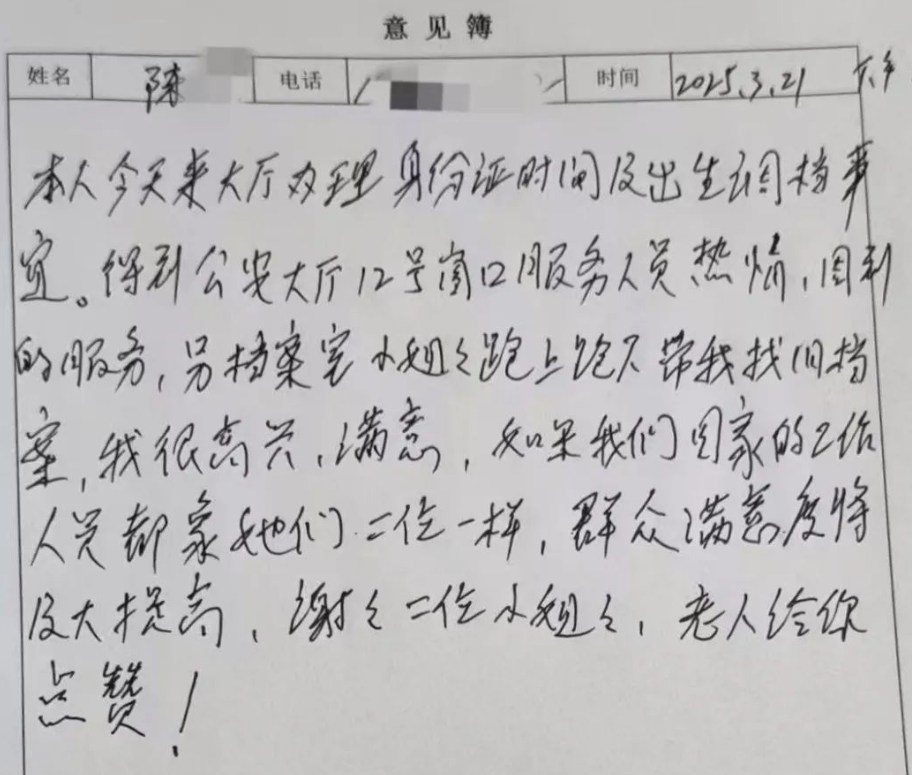 意见簿
姓名 陈 电话 时间 2025.3.21 下午
本人今天来大厅办理身份证时间及出生调档事
宜。得到公安大厅12号窗口服务人员热情、周到
的服务,另档案室小姐々跑上跑下带我找旧档
案,我很高兴、满意,如果我们国家的工作
人员都象她们二位一样,群众满意度将
及大提高,谢々二位小姐々,老人给你
点赞!